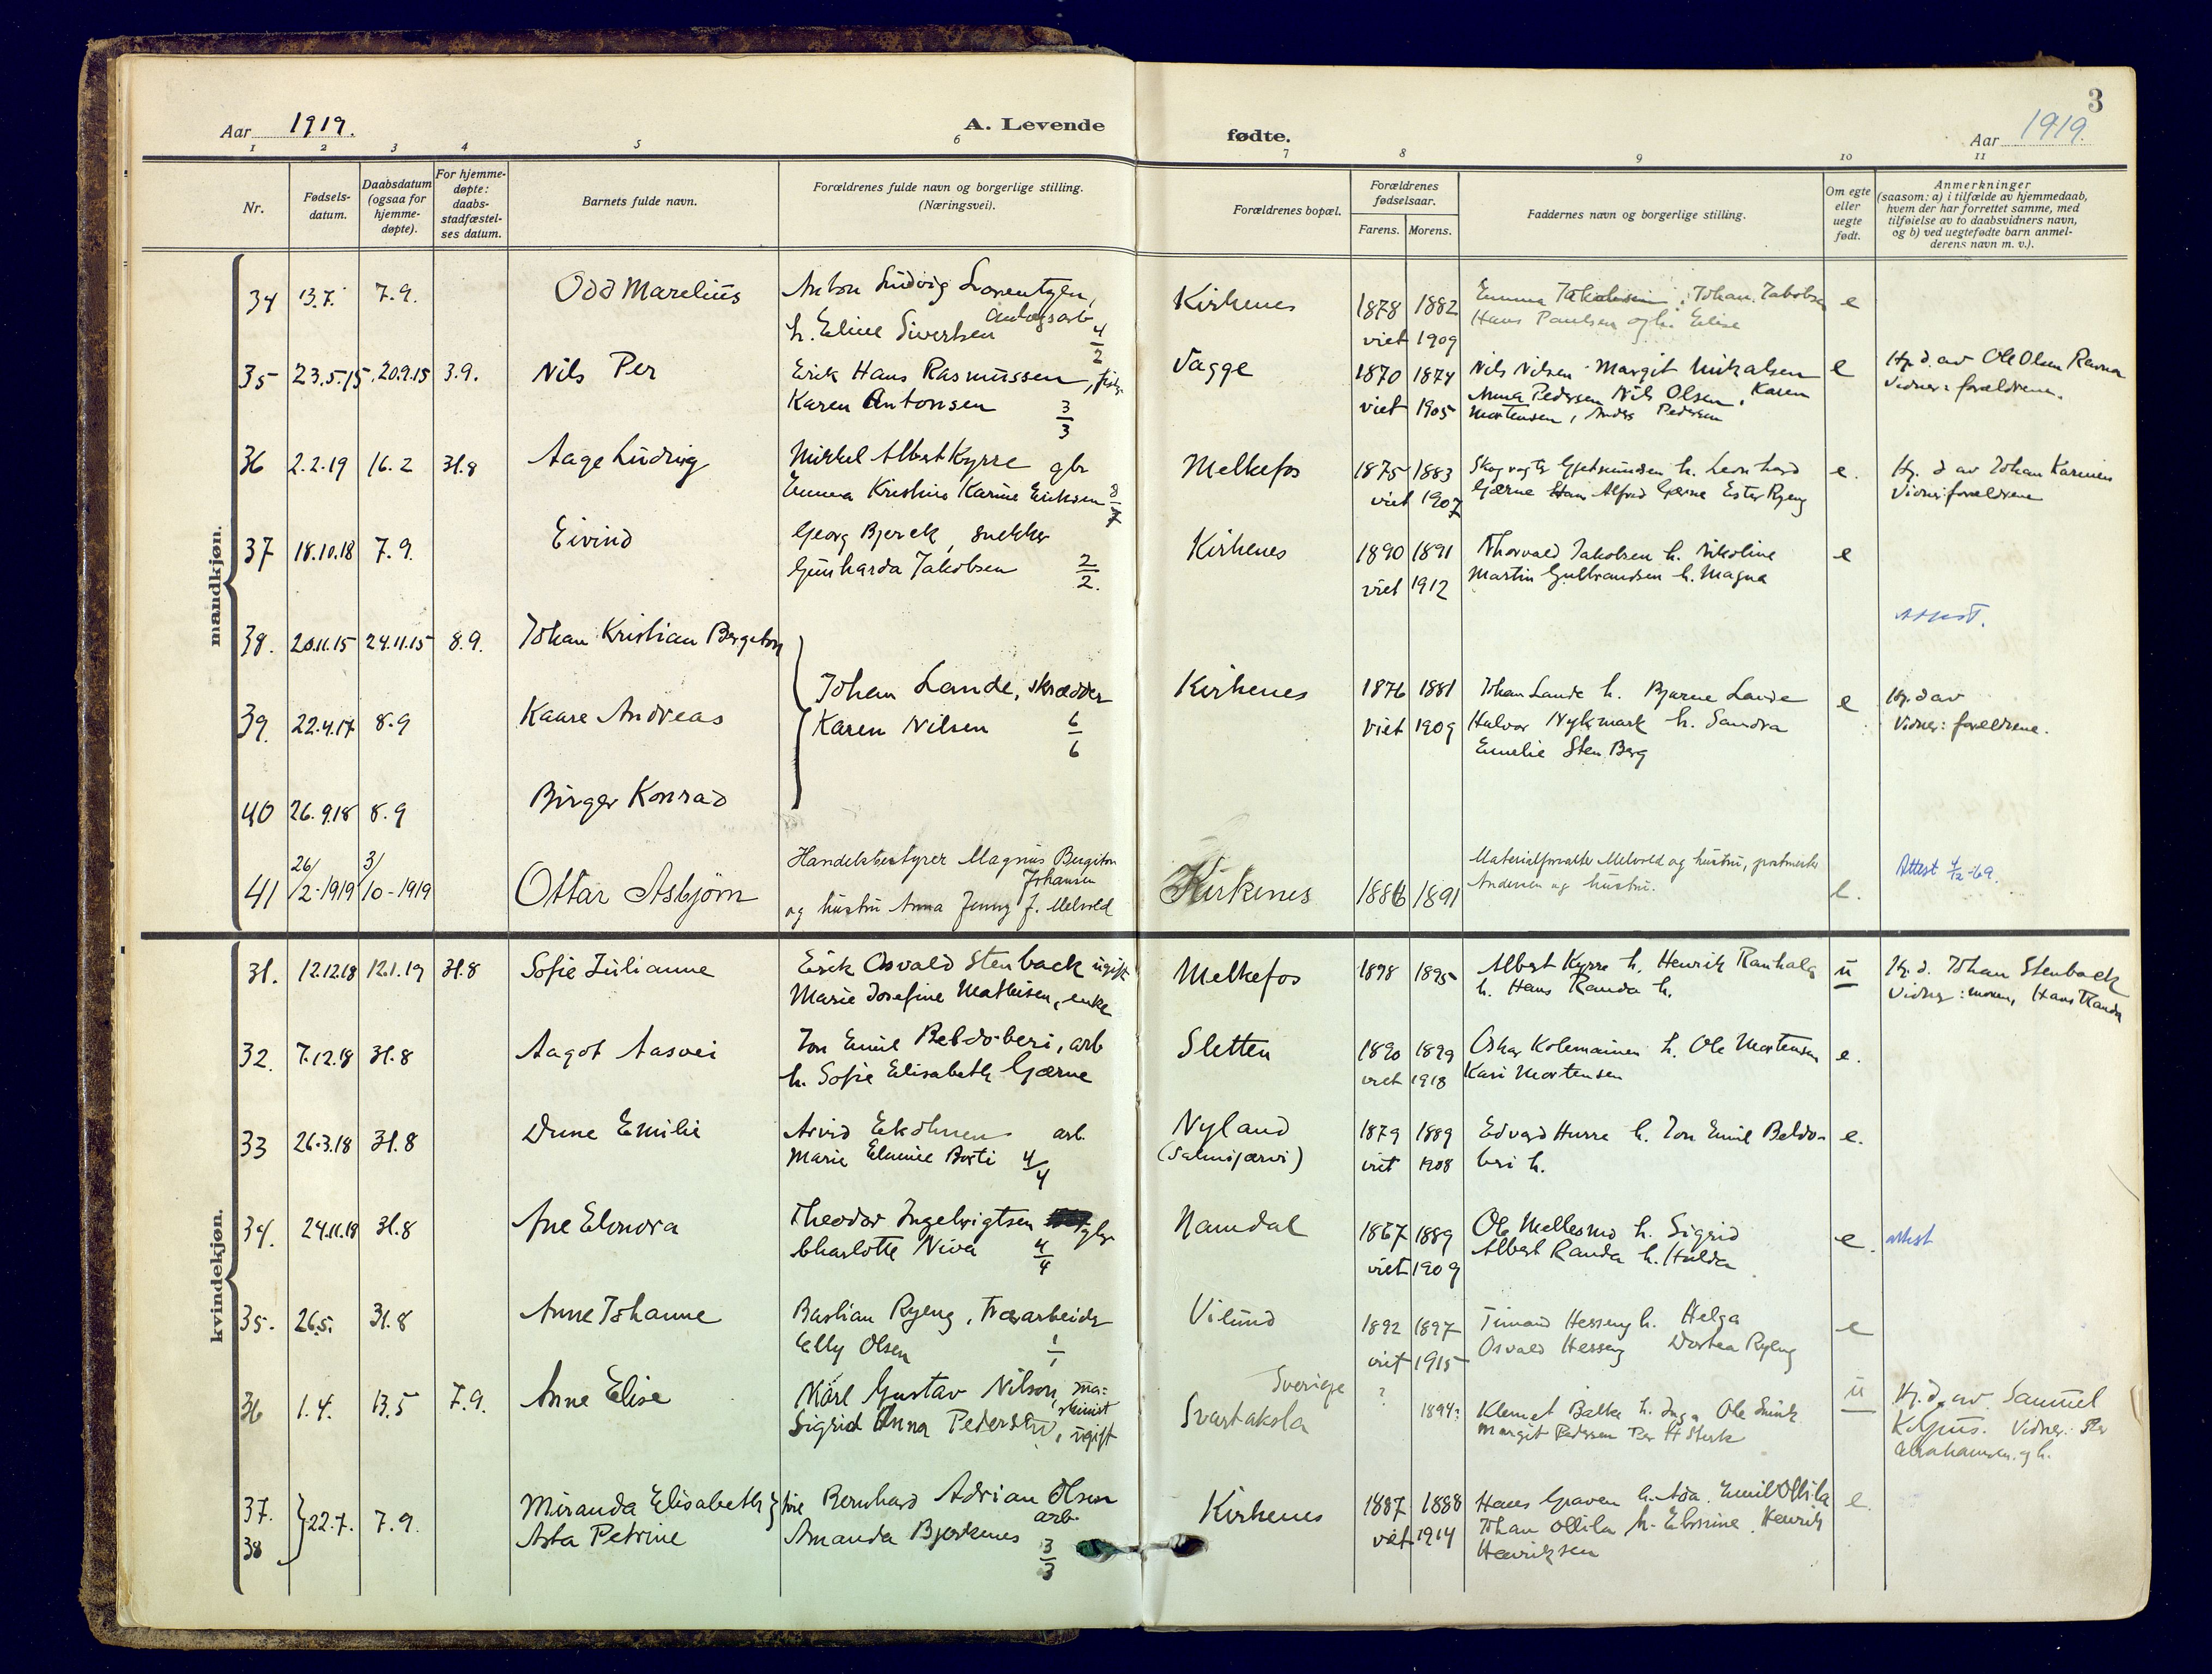 3
Aar 1919.
A. Levende
fødte.
Aar 1919.
1 2 3 4 5 6 7 8 9 10 11
Nr.
Fødsels-
datum.
Daabsdatum
(ogsaa for
hjemme-
døpte).
For hjemme-
døpte:
daabs-
stadfæstel-
ses datum.
Barnets fulde navn.
Forældrenes fulde navn og borgerlige stilling.
(Næringsvei).
Forældrenes bopæl.
Forældrenes
fødselsaar.
Farens. Morens.
Faddernes navn og borgerlige stilling.
Om egte
eller
uegte
født.
Anmerkninger
(saasom: a) i tilfælde av hjemmedaab,
hvem der har forrettet samme, med
tilføielse av to daabsvidners navn,
og b) ved uegtefødte barn anmel-
derens navn m. v.).
mandkjøn.
34 13.7. 7.9. Odd Marelius
Anton Ludvig Lorentzen,
anlegsarb
h. Eline Sivertsen 4/2
Kirkenes 1878 1882
viet 1909
Emma Jakobsen, Johan Jakobsen
Hans Paulsen og h. Elise
e
35 23.5.15 20.9.15 3.9. Nils Per
Erik Hans Rasmussen, fisker
Karen Antonsen 3/3
Vagge 1870 1874
viet 1905
Nils Nilsen Margit Mikalsen
Anna Pedersen Nils Olsen, Karen
Mortensen, Anders Pedersen
e
Hj. d. av Ole Olsen Ravna
Vidner: forældrene.
36 2.2.19 16.2 31.8 Aage Ludvig
Mikkel Albert Kyrre gbr
Emma Kristine Karine Eriksen 8/7
Melkefos 1875 1883
viet 1907
Skogvogter Gjetmundsen h. Leonhard
Gærne Alfred Gærne Ester Ryeng
e.
Hj. d av Johan Karinen
Vidner forældrene
37 18.10.18 7.9. Eivind
Georg Bjerek, snekker
Gunharda Jakobsen 2/2.
Kirkenes 1890 1891
viet 1912
Thorvald Jakobsen h. Nikoline
Martin Gulbrandsen h. Magna
e
Attest.
38. 20.11.15 24.11.15 8.9. Johan Kristian Bergeton
39. 22.4.17 8.9 Kaare Andreas
40 26.9.18 8.9 Birger Konrad
Johan Lande, skrædder
Karen Nilsen 6/6
Kirkenes 1876 1881
viet 1909
Johan Lande h. Bjarne Lande
Halvor Nykmark h. Sandra
Emelie Sten Berg
e
Hj. d av
Vidner: forældrene.
41 26/2-1919 3/10-1919 Ottar Asbjørn
Handelsbestyrer Magnus Bergiton
Johansen
og hustru Anna Jenny J. Melvold
Kirkenes 1886 1891
Materialforvalter Melvold og hustru, postmester
Andersen og hustru.
e.
Attest 4/2-69.
kvindekjøn.
31. 12.12.18 12.1.19 31.8 Sofie Julianne
Erik Osvald Stenback ugift
Marie Josefine Mathisen, enke
Melkefos 1898 1895
Albert Kyrre h. Henrik Ranhala
h. Hans Randa h.
u
Hj. d. Johan Stenback
Vidner: moren, Hans Randa
32. 7.12.18 31.8 Aagot Aasvei
Jon Emil Beldoberi, arb
h. Sofie Elisabeth Gærne
Sletten 1890 1899
viet 1918
Oskar Kolemainen h. Ole Mortensen
Kari Mortensen
e.
33 26.3.18 31.8 Dune Emilie
Arvid arb.
Marie 4/4
Nyland
(Salmijærvi) 1879 1889
viet 1908
Edvard Hurre h. Jon Emil Beldo-
beri h.
e.
34. 24.11.18 31.8 Ane Elonora
Theodor Ingebrigtsen gbr
Charlotte Niva 4/4
Namdal 1867 1889
viet 1909
Ole Mellesmo h. Sigrid
Albert Randa h. Hulda
e.
attest
35. 26.5. 31.8 Anne Johanne
Bastian Ryeng, træarbeider
Elly Olsen 1/1
Vilund 1892 1897
viet 1915
Timand Hesseng h. Helga
Osvald Hesseng Dortea Ryeng
e
36 1.4. 13.5 7.9. Anne Elise
Karl Gustav Nilson, ma=
skinist
Sigrid Anna Pedersen, ugift
Sverige ?
Svartaksla 1894?
Klemet Balke h. Inga Ole
Margit Pedersen Per H Sterk
u
Hj. d. av Samuel
Vidner: Per
Abrahamsen og h.
37.
38 22.7. 7.9. Miranda Elisabeth
Asta Petrine
Bernhard Adrian Olsen
arb.
Amanda Bjerkenes 3/3
Kirkenes 1887 1888
viet 1914
Hans Graven h. Ada. Emil Ollila
Johan Ollila h. Henrik
Henriksen
e.